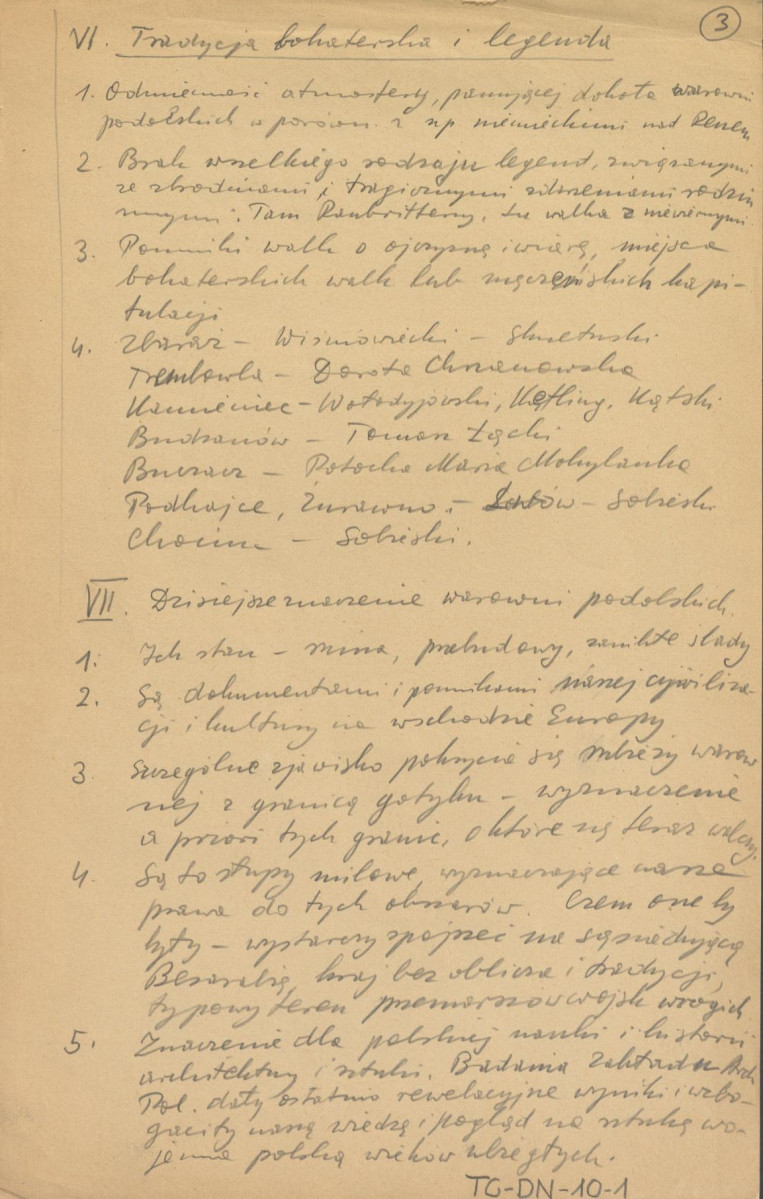 3
VI. Tradycja bohaterska i legenda
1. Odmienność atmosfery, panującej dokoła warowni
podolskich w porówn. z np niemieckimi nad Renem
2. Brak wszelkiego rodzaju legend, związanymi
ze zbrodniami i tragicznymi zdarzeniami rodzin
nnymi. Tam Raubritterzy, tu walka z niewiernymi.
3. Pomniki walk o ojczyznę i wiarę, miejsca
bohaterskich walk lub męczeńskich kapi-
tulacji
4. Zbaraż – Wiśniowiecki – Skrzetuski
Trembowla – Dorota Chrzanowska
Kamieniec – Wołodyjowski, Kętling, Kątski
Budzanów – Tomasz Łącki
Buczacz – Potocka Maria Mohylanka
Podhajce, Żurawno – – Sobieski
Chocim – Sobieski.
VII. Dzisiejsze znaczenie warowni podolskich.
1. Ich stan – ruina, przebudowy, zanikłe ślady
2. Są dokumentami i pomnikami naszej cywiliza-
cji i kultury na wschodzie Europy
3. Szczególne zjawisko pokrycia się rubieży warow
nej z granicą gotyku – wyznaczenie
a priori tych granic, o które się teraz walczy.
4. Są to słupy milowe, wyznaczające nasze
prawa do tych obszarów. Czem one by
były – wystarczy spojrzeć na sąsiadującą
Besarabię, kraj bez oblicza i tradycji,
typowy teren przemarszów wojsk wrogich
5. Znaczenie dla polskiej nauki i historii
architektury i sztuki. Badania Zakładu Arch
Pol. dały ostatnio rewelacyjne wyniki i wzbo-
gaciły naszą wiedzę i pogląd na sztukę wo-
jenną polską wieków ubiegłych.
TG-DN-10-1